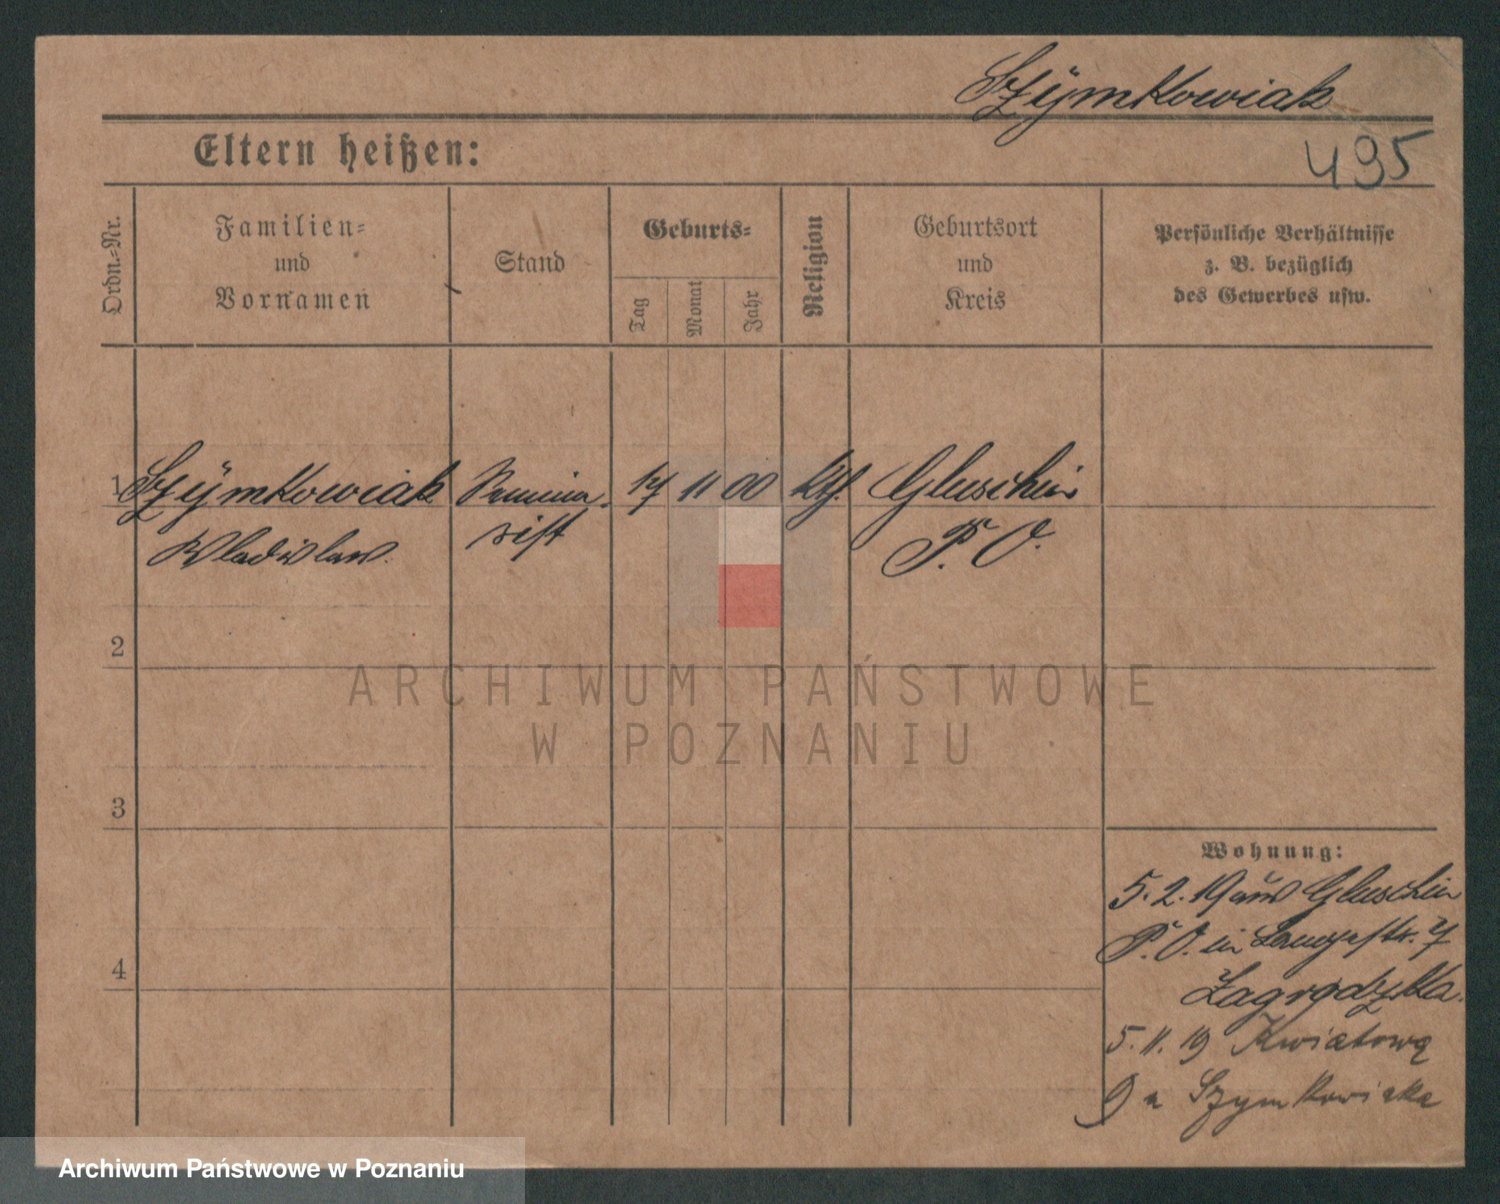 Szÿmkowiak
Eltern heißen:
495
Ordn.-Nr.
Familien-
und
Vornamen
Stand
Geburts-
Tag
Monat
Jahr
Religion
Geburtsort
und
Kreis
Persönliche Verhältnisse
z. B. bezüglich
des Gewerbes usw.
1 Szÿmkowiak Semina 17 11 00 kth. Gluschin
Wladislaw. rist P. O.
2
3
4
Wohnung:
5. 2. 19 aus Gluschin
P. O. in Langestr. 7
Zagrodzka.
5. 11. 19 Kwiatową
9 a Szymkowiaka
ARCHIWUM PAŃSTWOWE
W POZNANIU
Archiwum Państwowe w Poznaniu